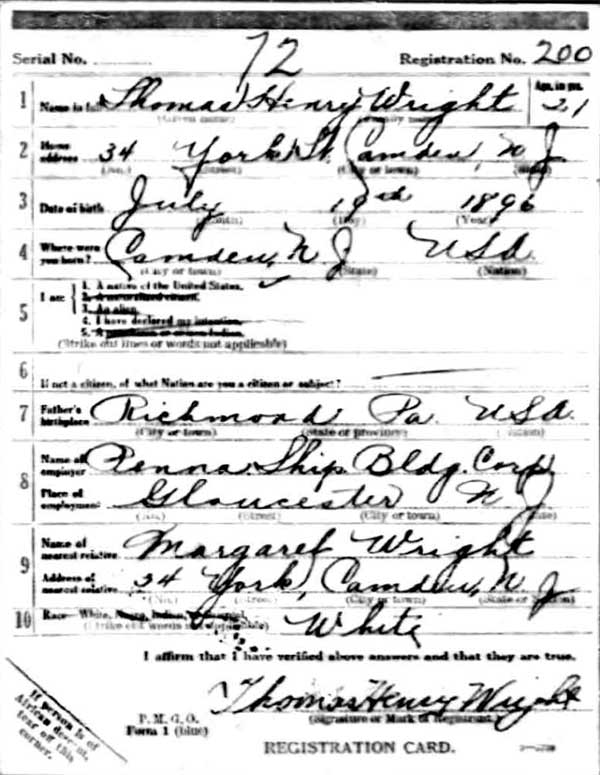 Serial No. 72 Registration No. 200
1 Name in full Thomas Henry Wright Age, in yrs. 21
(Given name) (Family name)
2 Home address 34 York St. Camden, N J
(No.) (Street) (City or town) (State)
3 Date of birth July 19th 1896
(Month) (Day) (Year)
4 Where were you born? Camden, N J USA
(City or town) (State) (Nation)
5 I am:
1. A native of the United States. ✓
2. A naturalized citizen.
3. An alien.
4. I have declared my intention.
5. A
(Strike out lines or words not applicable)
6 If not a citizen, of what Nation are you a citizen or subject?
7 Father's birthplace Richmond Pa. USA.
(City or town) (State or province) (Nation)
8 Name of employer Penna. Ship Bldg. Corp
Place of employment Gloucester N J
(No.) (Street) (City or town) (State)
9 Name of nearest relative Margaret Wright
Address of nearest relative 34 York, Camden, N J
(No.) (Street) (City or town) (State or Nation)
10 Race— White, Negro, Indian, White
(Strike out words not applicable)
I affirm that I have verified above answers and that they are true.
Thomas Henry Wright
(Signature or Mark of Registrant.)
P. M. G. O.
Form 1 (blue)
REGISTRATION CARD.
If person is of
African descent,
tear off this
corner.